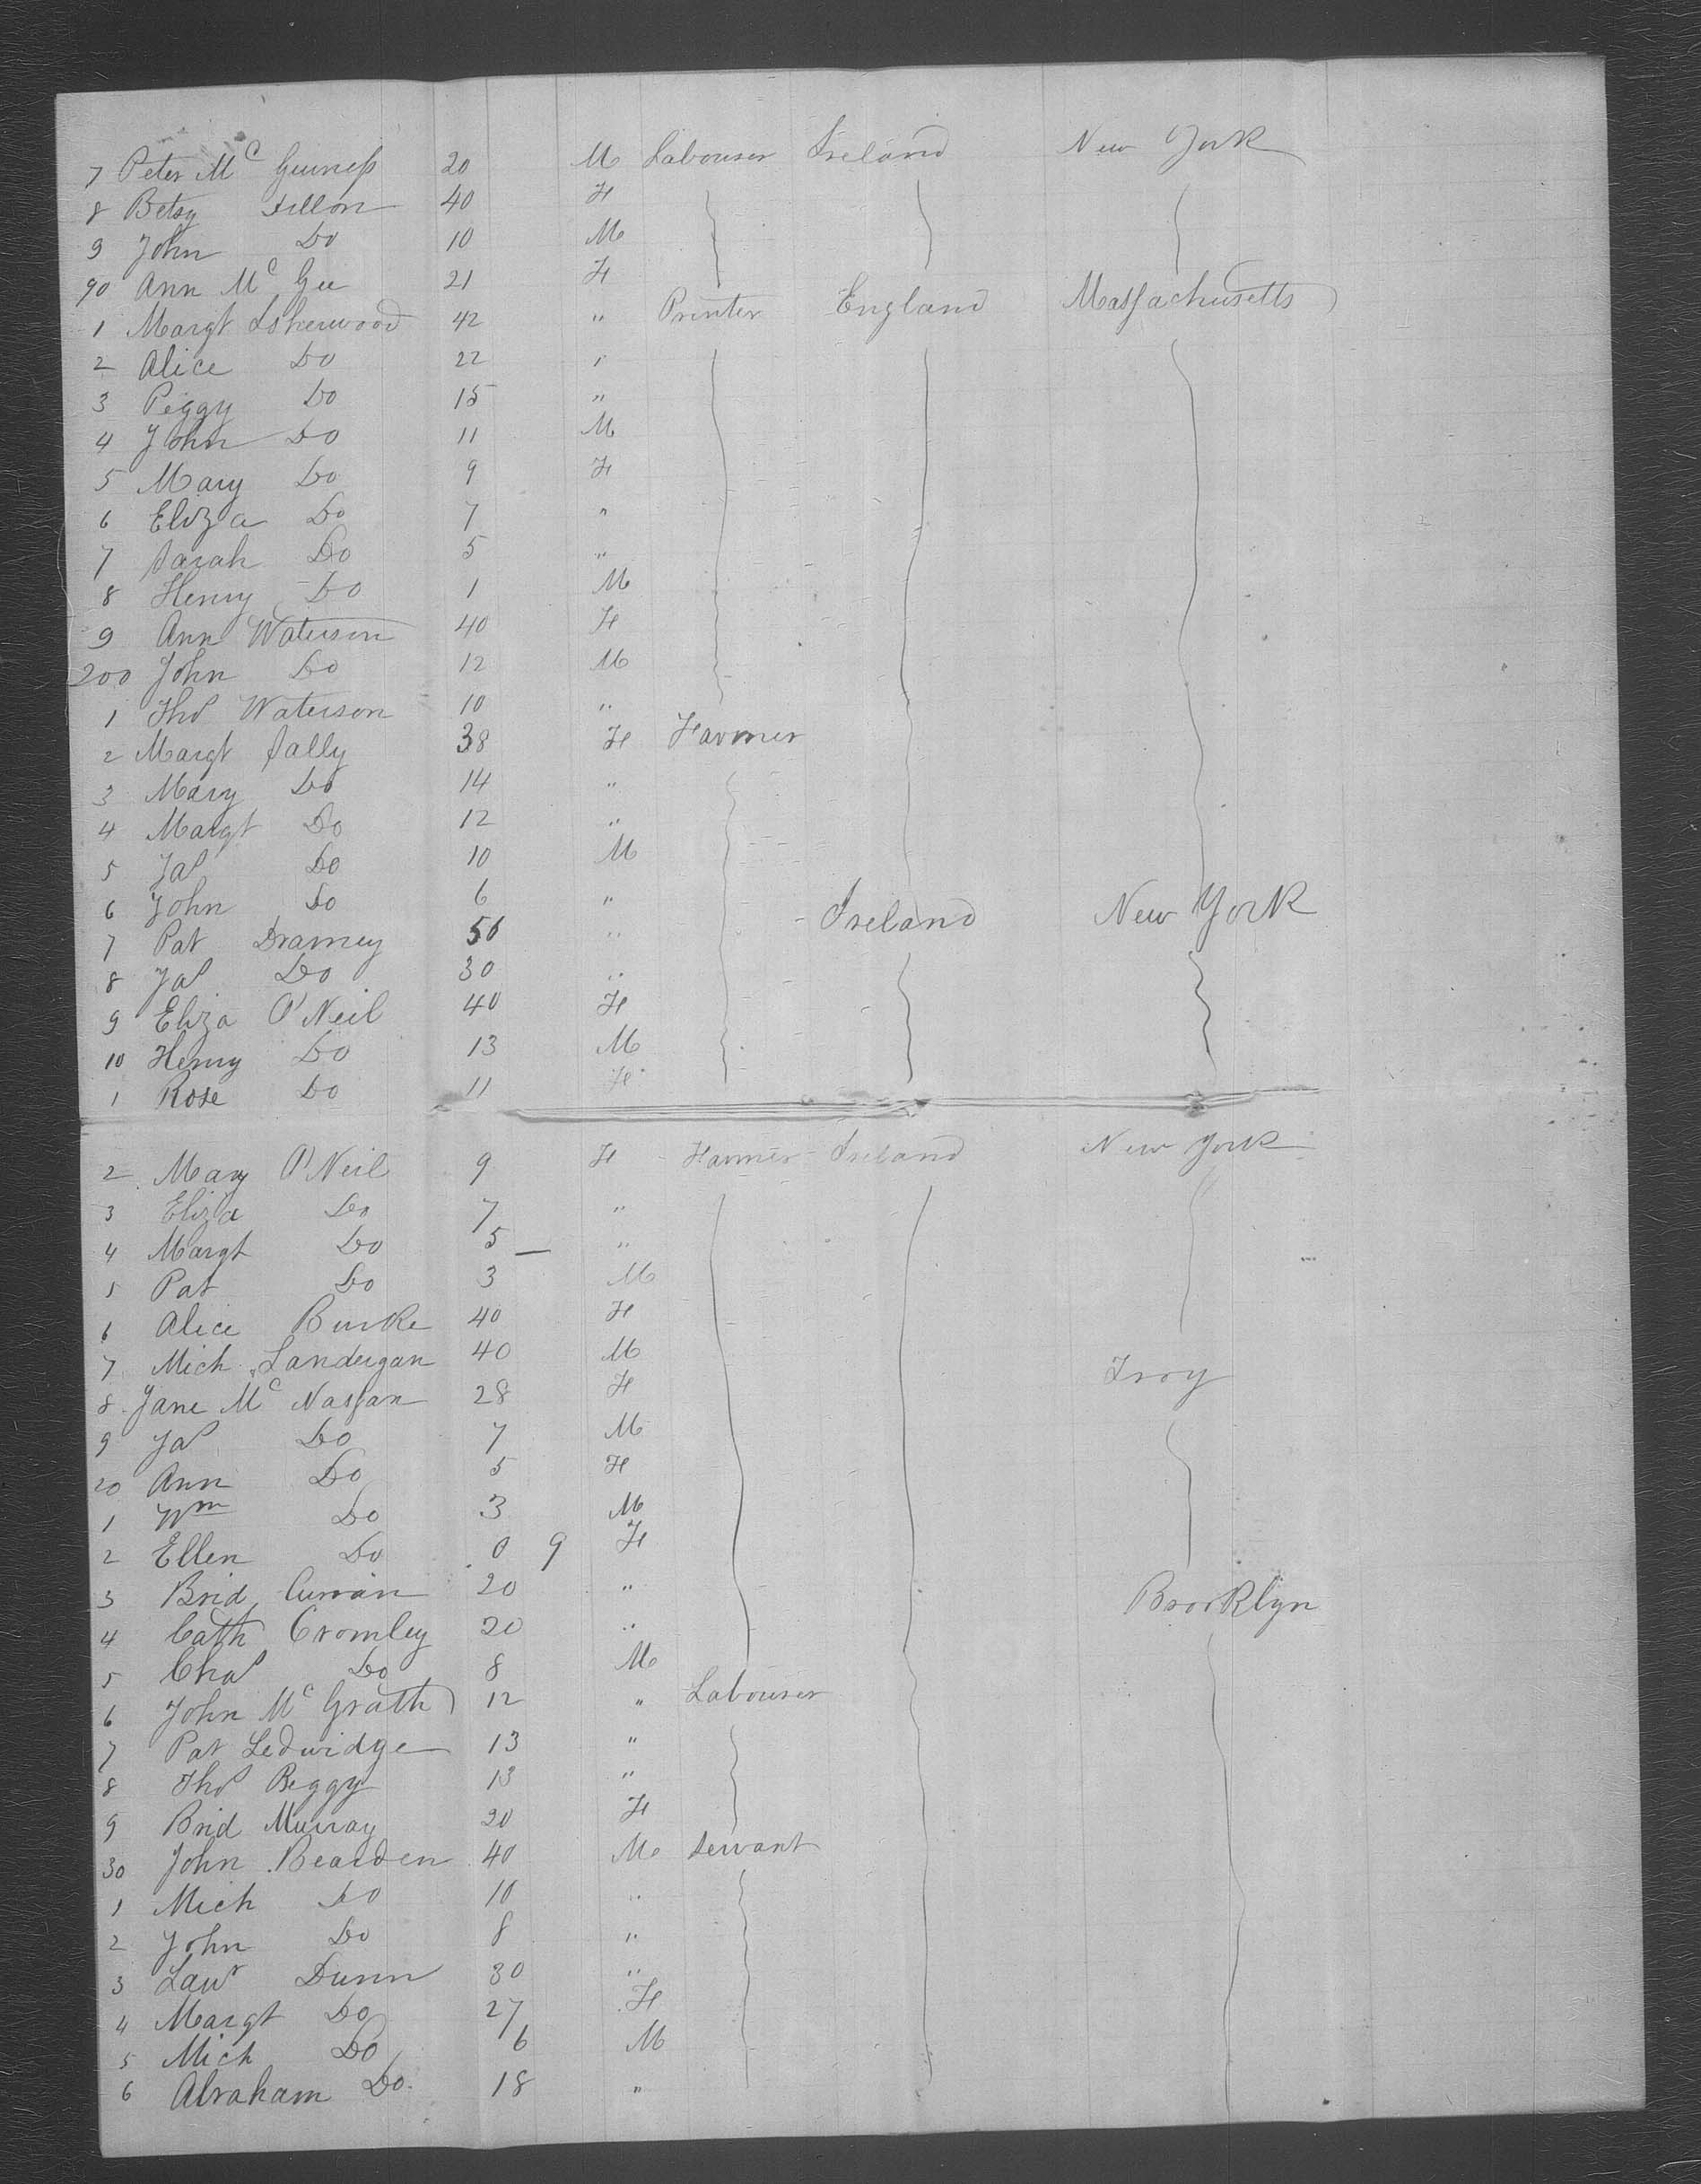 7 Peter Mc Guiness 20 M Labourer Ireland New York
8 Betsy Dillon 40 F
9 John Do 10 M
90 Ann Mc Gee 21 F
1 Margt Isherwood 42 " Printer England Massachusetts
2 Alice Do 22 "
3 Peggy Do 15 "
4 John Do 11 M
5 Mary Do 9 F
6 Eliza Do 7 "
7 Sarah Do 5 "
8 Henry Do 1 M
9 Ann Waterson 40 F
200 John Do 12 M
1 Thos Waterson 10 "
2 Margt Sally 38 F Farmer
3 Mary Do 14 "
4 Margt Do 12 "
5 Jas Do 10 M
6 John Do 6 "
7 Pat Dramey 56 " Ireland New York
8 Jas Do 30 "
9 Eliza O'Neil 40 F
10 Henry Do 13 M
1 Rose Do 11 F
2 Mary O'Neil 9 F Farmer Ireland New York
3 Eliza Do 7 "
4 Margt Do 5 "
5 Pat Do 3 M
6 Alice Burke 40 F
7 Mich Landergan 40 M Troy
8 Jane Mc Nassan 28 F
9 Jas Do 7 M
20 Ann Do 5 F
1 Wm Do 3 M
2 Ellen Do 0 9 F
3 Brid Curran 20 " Brooklyn
4 Cath Cromley 20 "
5 Chas Do 8 M
6 John Mc Grath 12 " Labourer
7 Pat Ledwidge 13 "
8 Thos Beggy 13 "
9 Brid Murray 20 F
30 John Bearden 40 M Servant
1 Mich Do 10 "
2 John Do 8 "
3 Lawr Dunn 30 "
4 Margt Do 27 F
5 Mich Do 6 M
6 Abraham Do 18 "